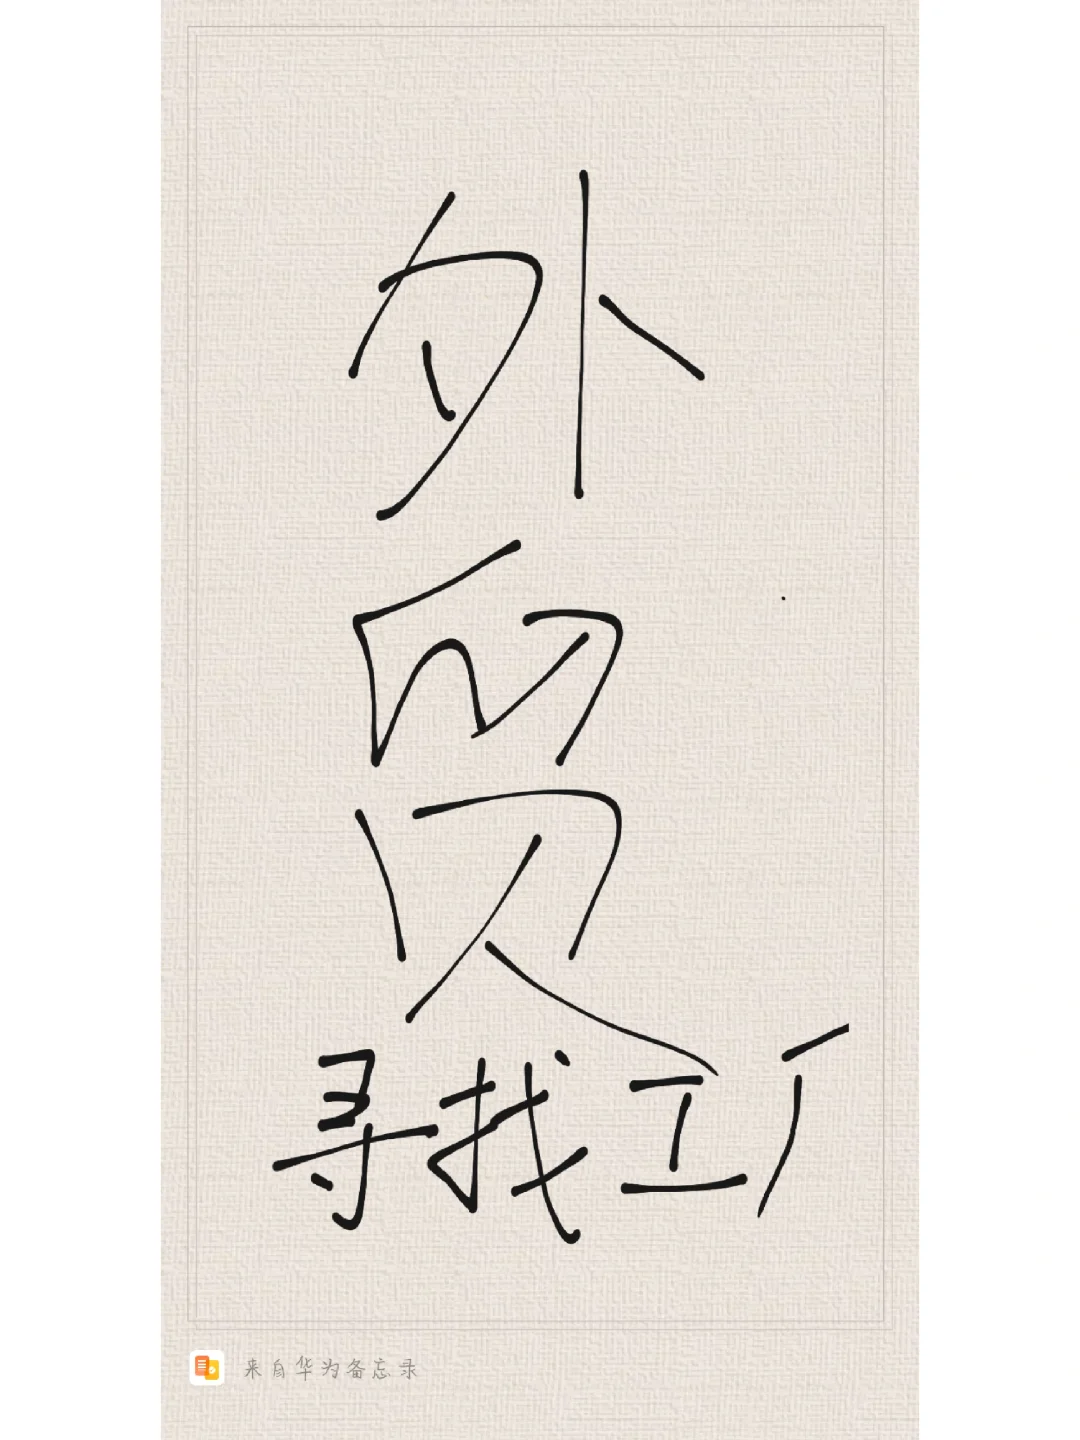 外
贸
寻找工厂
来自华为备忘录